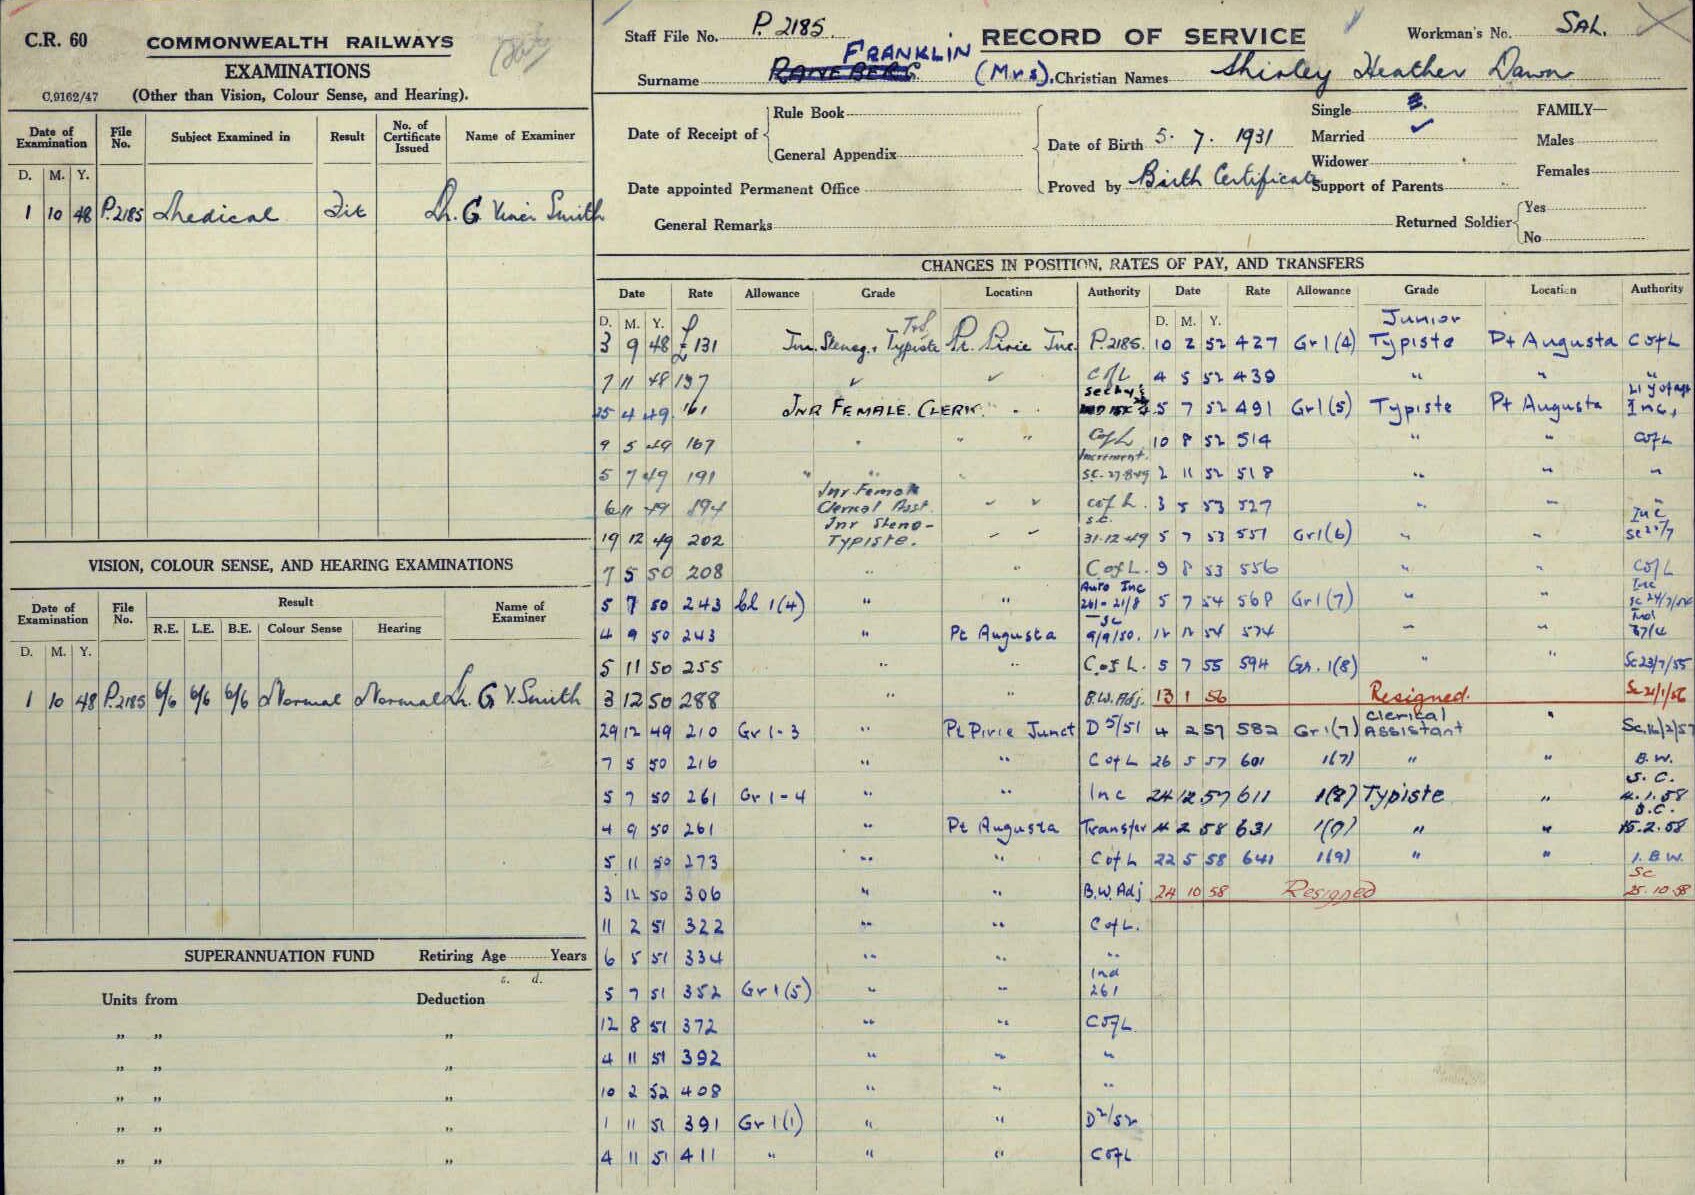 C.R. 60
COMMONWEALTH RAILWAYS
EXAMINATIONS
C.9162/47 (Other than Vision, Colour Sense, and Hearing).
Date of Examination File No. Subject Examined in Result No. of Certificate Issued Name of Examiner
D. M. Y.
1 10 48 P.2185 Medical Fit Dr. G Viner Smith
VISION, COLOUR SENSE, AND HEARING EXAMINATIONS
Date of Examination File No. Result Name of Examiner
R.E. L.E. B.E. Colour Sense Hearing
D. M. Y.
1 10 48 P.2185 6/6 6/6 6/6 Normal Normal Dr. G V. Smith
SUPERANNUATION FUND Retiring Age Years
s. d.
Units from Deduction
„ „ „
„ „ „
„ „ „
„ „ „
„ „ „
Staff File No. P. 2185. RECORD OF SERVICE Workman's No. SAL.
FRANKLIN
Surname (Mrs). Christian Names Shirley Heather Dawn
Date of Receipt of Rule Book
General Appendix
Date of Birth 5. 7. 1931
Single
Married ✓
Widower
Support of Parents
FAMILY—
Males
Females
Date appointed Permanent Office
Proved by Birth Certificate
General Remarks
Returned Soldier Yes
No
CHANGES IN POSITION, RATES OF PAY, AND TRANSFERS
Date Rate Allowance Grade Location Authority Date Rate Allowance Grade Location Authority
D. M. Y. £ D. M. Y.
3 9 48 £ 131 Jnr. Stenog. & Typiste Pt. Pirie Junc. P.2185.
7 11 48 137 ✓ ✓ C of L
25 4 49 161 JNR FEMALE. CLERK. " "
9 5 49 167 " " " C of L
5 7 49 191 " " Increment. S.C. 27-8-49
6 11 49 194 Jnr Female Clerical Asst. C of L.
19 12 49 202 Jnr Steno-Typiste. S.C. 31-12-49
7 5 50 208 " " C of L.
5 7 50 243 Cl 1(4) " " Auto Inc 261-21/8
4 9 50 243 " Pt Augusta SC 9/9/50.
5 11 50 255 " " C of L.
3 12 50 288 " " B.W. Adj.
29 12 49 210 Gr 1-3 " Pt Pirie Junct D 5/51
7 5 50 216 " " C of L
5 7 50 261 Gr 1-4 " " Inc
4 9 50 261 " Pt Augusta Transfer
5 11 50 273 " " C of L
3 12 50 306 " " B.W. Adj
11 2 51 322 " " C of L.
6 5 51 334 " " "
5 7 51 352 Gr 1(5) " " Ind 261
12 8 51 372 " " C of L
4 11 51 392 " " "
10 2 52 408 " " "
1 11 51 391 Gr 1(1) " " D 2/52
4 11 51 411 " " " C of L
10 2 52 427 Gr 1(4) Junior Typiste Pt Augusta C of L
4 5 52 439 " " "
5 7 52 491 Gr 1(5) Typiste Pt Augusta 21 y of age Inc,
10 8 52 514 " " C of L
2 11 52 518 " " "
3 5 53 527 " " "
5 7 53 551 Gr 1(6) " " Inc
9 8 53 556 " " C of L
5 7 54 568 Gr 1(7) " " Inc SC 24/7/54
12 12 54 574 " "
5 7 55 594 Gr. 1(8) " " SC 23/7/55
13 1 56 Resigned. Sc 21/1/56
4 2 57 582 Gr 1(7) Clerical Assistant " Sc. 16/2/57
26 5 57 601 1(7) " " B.W.
24 12 57 611 1(8) Typiste " S.C. 4.1.58
4 2 58 631 1(9) " " S.C. 15.2.58
22 5 58 641 1(9) " " 1. B.W.
24 10 58 Resigned SC 25.10.58